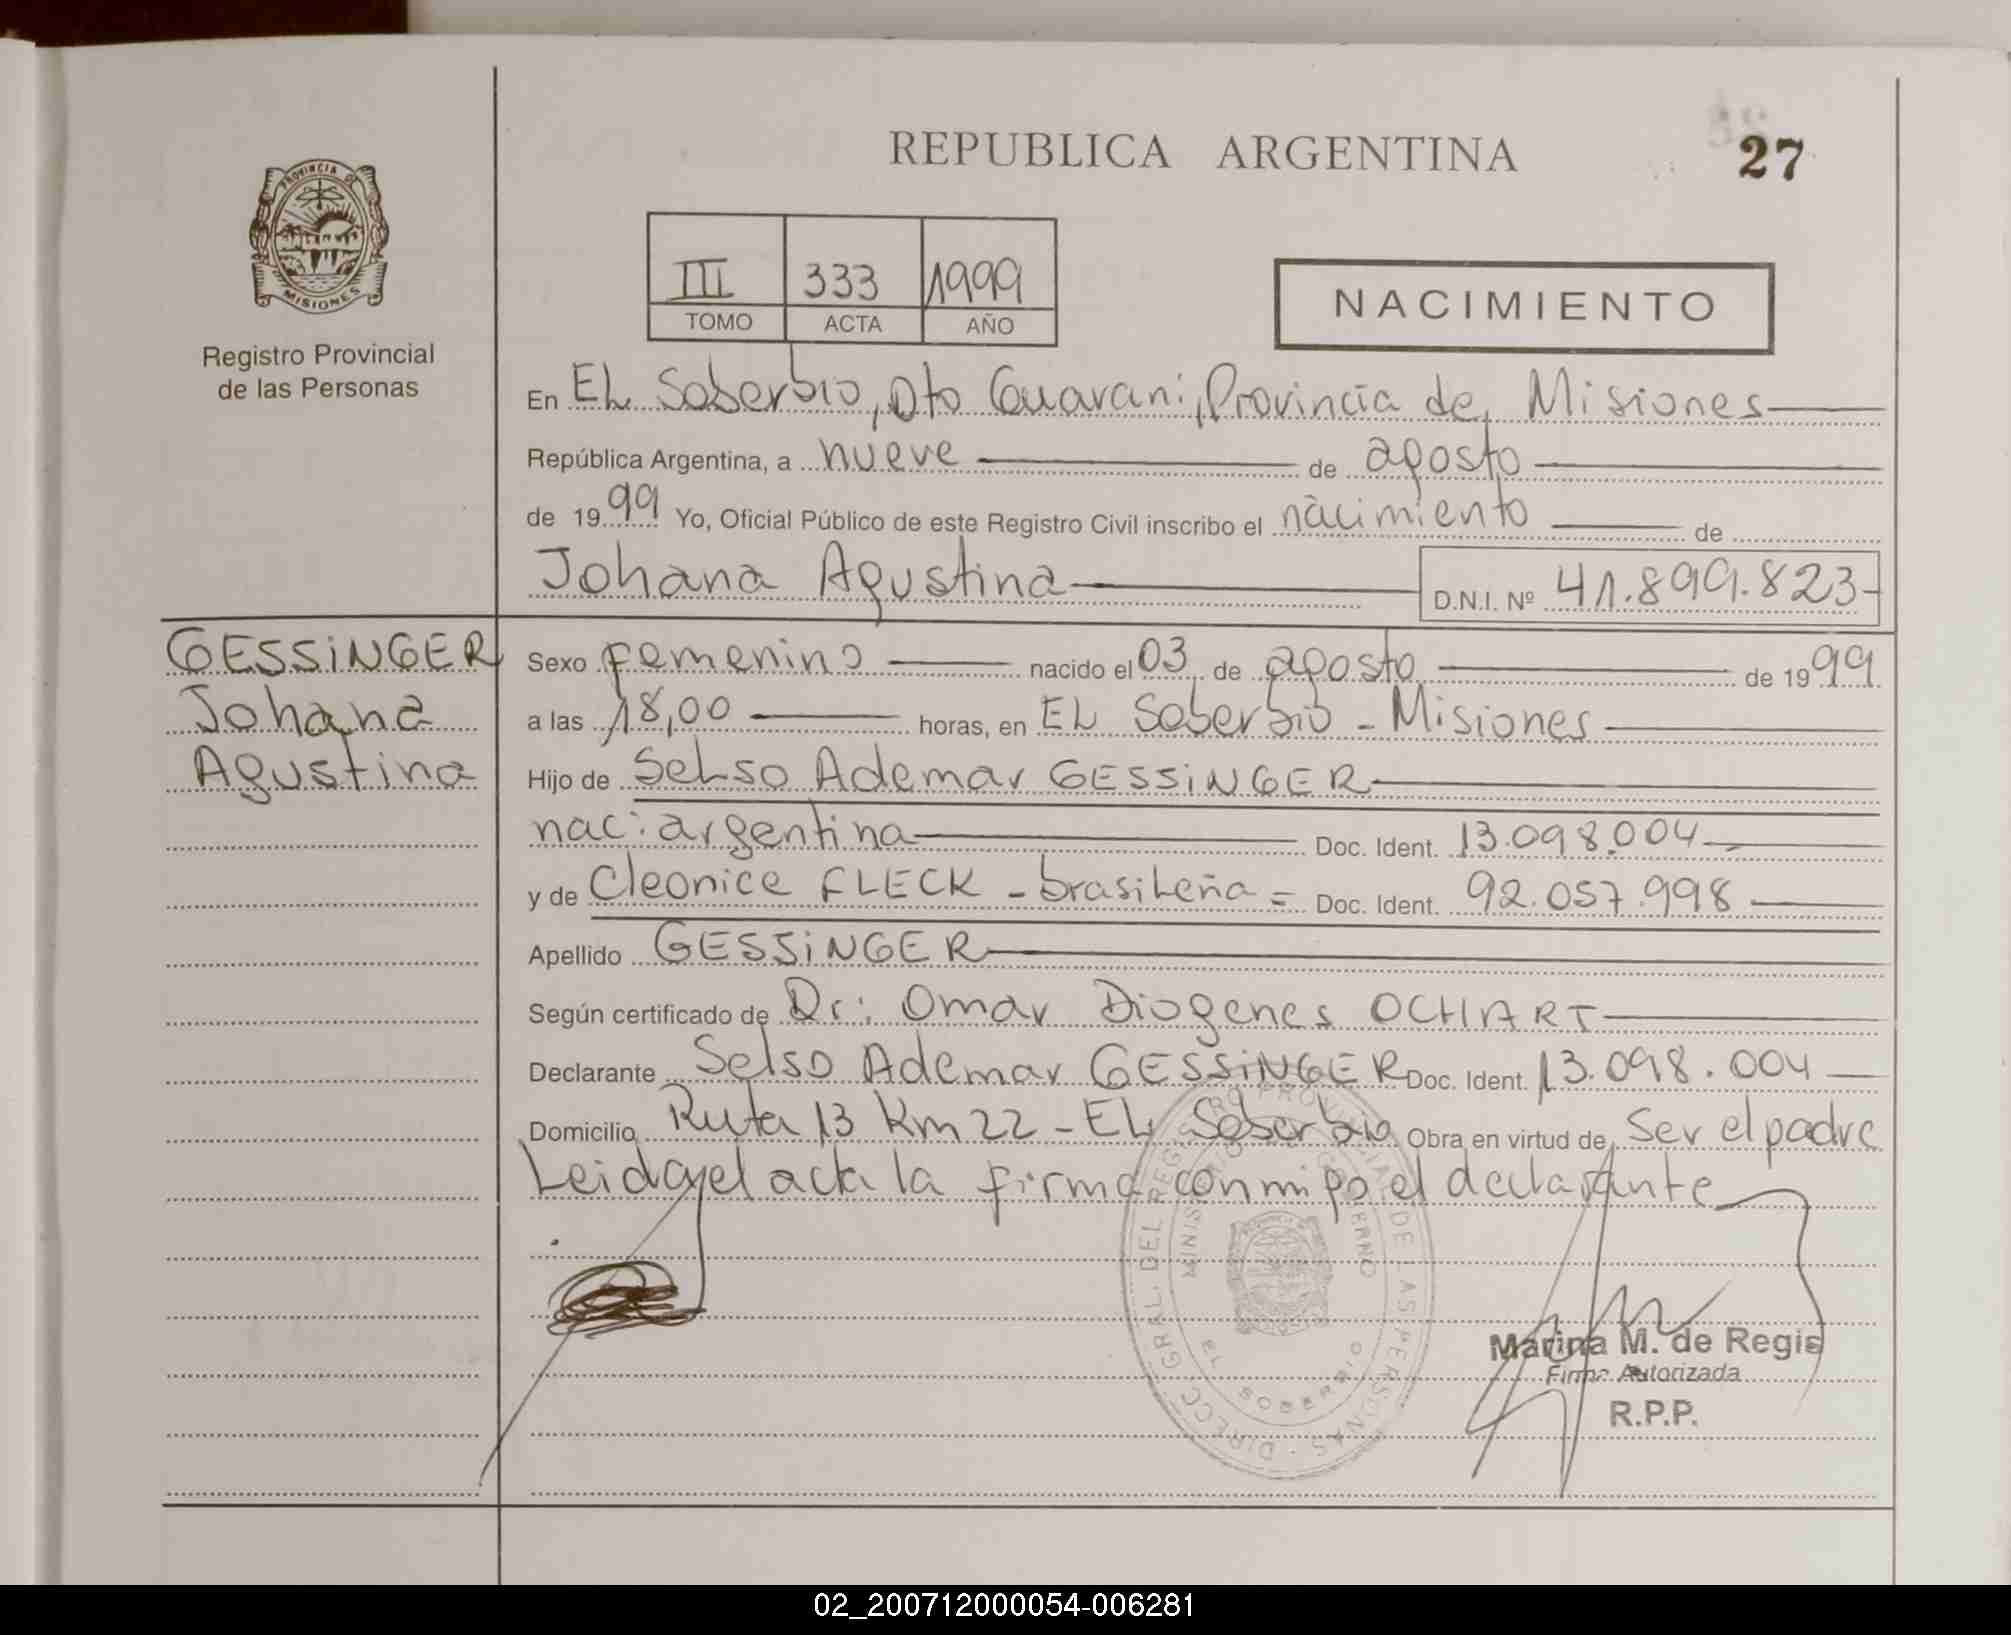 REPUBLICA ARGENTINA
27
PROVINCIA DE
MISIONES
Registro Provincial
de las Personas
III 333 1999
TOMO ACTA AÑO
NACIMIENTO
En EL Soberbio, Dto Guarani, Provincia de Misiones
República Argentina, a nueve de agosto
de 1999 Yo, Oficial Público de este Registro Civil inscribo el nacimiento de
Johana Agustina D.N.I. Nº 41.899.823
GESSiNGER
Johana
Agustina
Sexo femenino nacido el 03 de agosto de 1999
a las 18,00 horas, en EL Soberbio - Misiones
Hijo de SeLso Ademar GESSiNGER
nac: argentina Doc. Ident. 13.098.004
y de Cleonice FLECK - brasiLeña = Doc. Ident. 92.057.998
Apellido GESSiNGER
Según certificado de Dr: Omar Diogenes OCHART
Declarante Selso Ademar GESSiNGER Doc. Ident. 13.098.004
Domicilio Ruta 13 Km 22 - EL Soberbio Obra en virtud de Ser el padre
Leida el acta la firma conmigo el declarante
DIRECC. GRAL. DEL REGISTRO PROVINCIAL DE LAS PERSONAS
MINISTERIO DE GOBIERNO
EL SOBERBIO
Marina M. de Regis
Firma Autorizada
R.P.P.
02_200712000054-006281